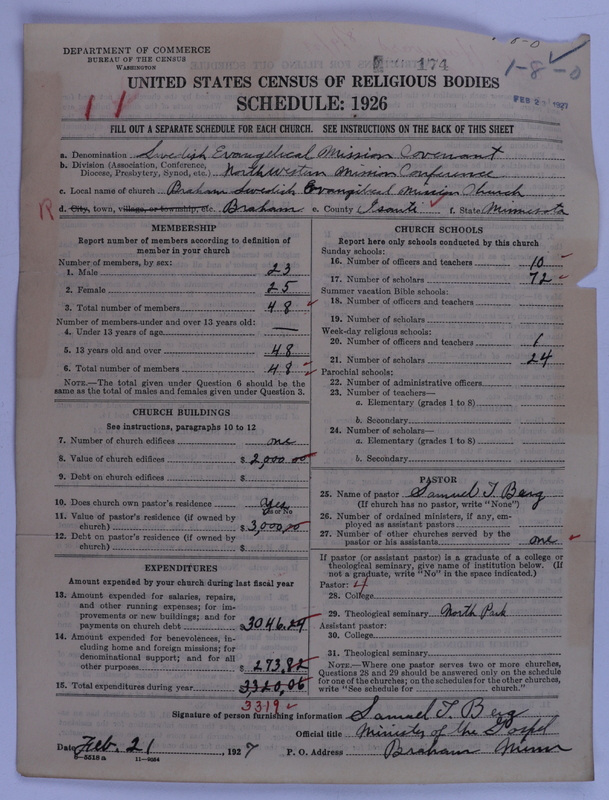 DEPARTMENT OF COMMERCE
BUREAU OF THE CENSUS
WASHINGTON
174
1-8-0
UNITED STATES CENSUS OF RELIGIOUS BODIES
SCHEDULE: 1926
FEB 2 1927
11
FILL OUT A SEPARATE SCHEDULE FOR EACH CHURCH. SEE INSTRUCTIONS ON THE BACK OF THIS SHEET
a. Denomination Swedish Evangelical Mission Covenant
b. Division (Association, Conference, Diocese, Presbytery, Synod, etc.) Northwestern Mission Conference
c. Local name of church Braham Swedish Evangelical Mission Church
R d. City, town, village, or township, etc. Braham e. County Isanti f. State Minnesota
MEMBERSHIP
Report number of members according to definition of
member in your church
Number of members, by sex:
1. Male 23
2. Female 25
3. Total number of members 48
Number of members under and over 13 years old:
4. Under 13 years of age —
5. 13 years old and over 48
6. Total number of members 48
NOTE.—The total given under Question 6 should be the
same as the total of males and females given under Question 3.
CHURCH BUILDINGS
See instructions, paragraphs 10 to 12
7. Number of church edifices one
8. Value of church edifices $ 2,000.00
9. Debt on church edifices $
10. Does church own pastor's residence Yes
Yes or No
11. Value of pastor's residence (if owned by
church) $ 3,000.00
12. Debt on pastor's residence (if owned by
church) $
EXPENDITURES
Amount expended by your church during last fiscal year
13. Amount expended for salaries, repairs,
and other running expenses; for im-
provements or new buildings; and for
payments on church debt $ 3046.24
14. Amount expended for benevolences, in-
cluding home and foreign missions; for
denominational support; and for all
other purposes $ 273.82
15. Total expenditures during year 3320.06
3319
CHURCH SCHOOLS
Report here only schools conducted by this church
Sunday schools:
16. Number of officers and teachers 10
17. Number of scholars 72
Summer vacation Bible schools:
18. Number of officers and teachers
19. Number of scholars
Week-day religious schools:
20. Number of officers and teachers 1
21. Number of scholars 24
Parochial schools:
22. Number of administrative officers
23. Number of teachers—
a. Elementary (grades 1 to 8)
b. Secondary
24. Number of scholars—
a. Elementary (grades 1 to 8)
b. Secondary
PASTOR
25. Name of pastor Samuel T. Berg
(If church has no pastor, write "None")
26. Number of ordained ministers, if any, em-
ployed as assistant pastors
27. Number of other churches served by the
pastor or his assistants one
If pastor (or assistant pastor) is a graduate of a college or
theological seminary, give name of institution below. (If
not a graduate, write "No" in the space indicated.)
Pastor: 4
28. College
29. Theological seminary North Park
Assistant pastor:
30. College
31. Theological seminary
NOTE.—Where one pastor serves two or more churches,
Questions 28 and 29 should be answered only on the schedule
for one of the churches; on the schedules for the other churches,
write "See schedule for church."
Signature of person furnishing information Samuel T. Berg
Official title Minister of the Gospel
Date Feb. 21, 1927 P. O. Address Braham Minn
8-5518 a 11-9024